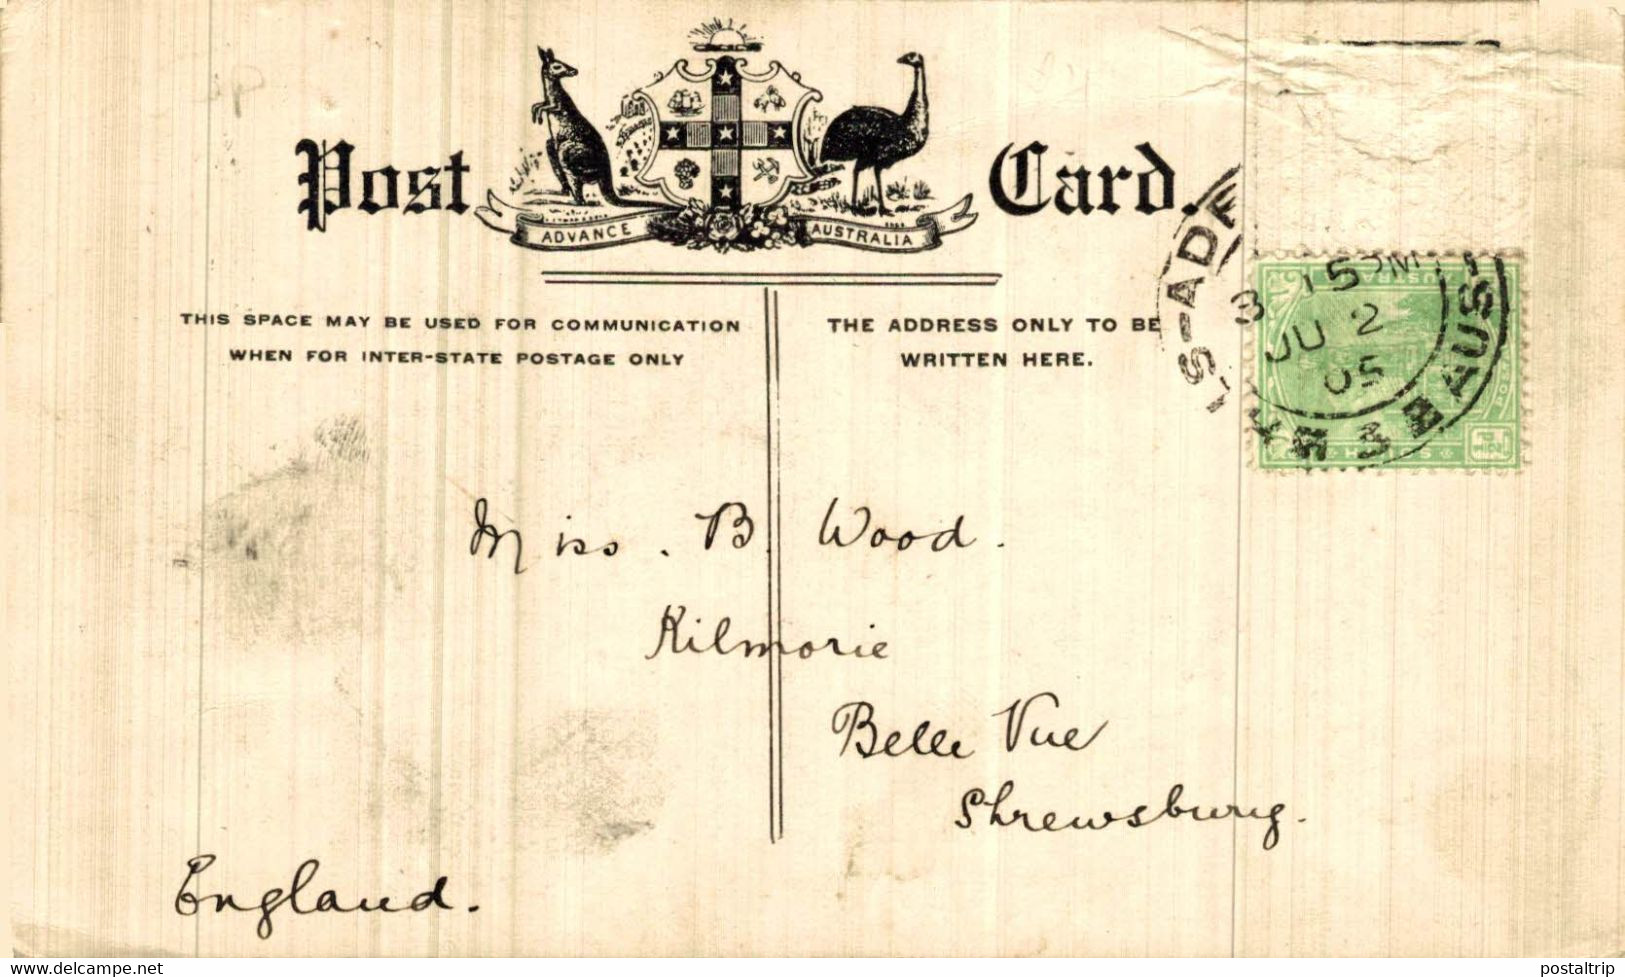 Post Card.
ADVANCE AUSTRALIA
THIS SPACE MAY BE USED FOR COMMUNICATION
WHEN FOR INTER-STATE POSTAGE ONLY
THE ADDRESS ONLY TO BE
WRITTEN HERE.
3 15 PM
JU 2
05
S-ADE
S AUS
Miss. B. Wood.
Kilmorie
Belle Vue
Shrewsbury.
England.
www.delcampe.net
postaltrip